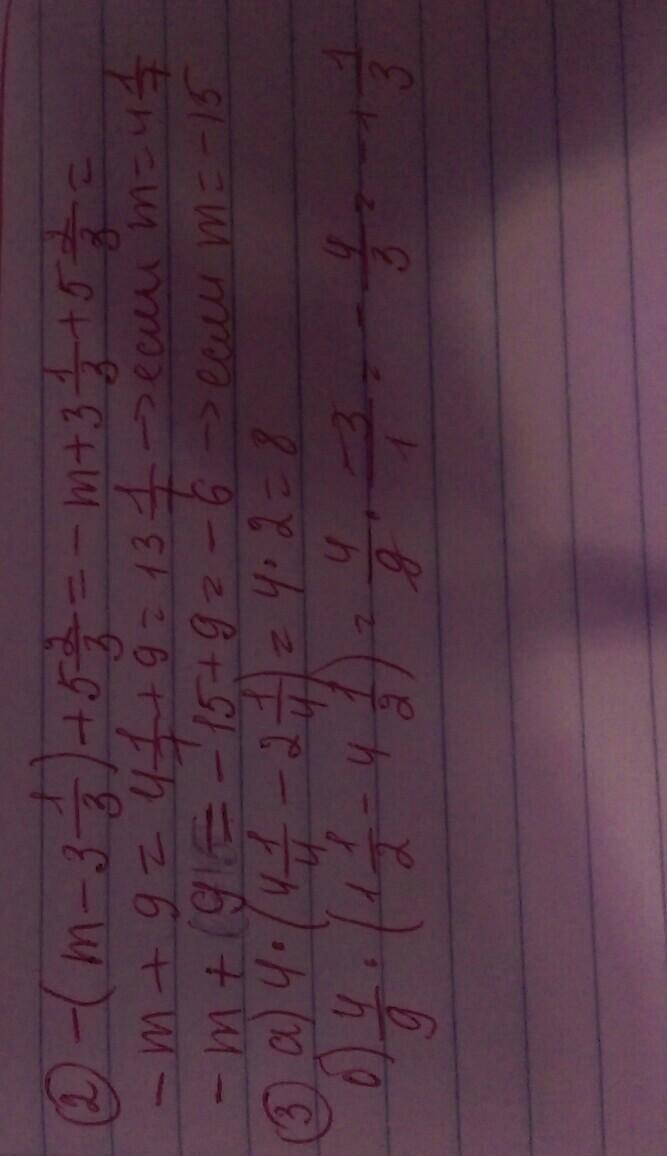 ② -(m-3 1/3)+5 2/3=-m+3 1/3+5 2/3=
-m+9=4 1/7+9=13 1/7→если m=4 1/7
-m+(9)=-15+9=-6→если m=-15
③ а) 4·(4 1/4-2 1/4)=4·2=8
б) 4/9·(1 1/2-4 1/2)=4/9·-3/1=-4/3=-1 1/3